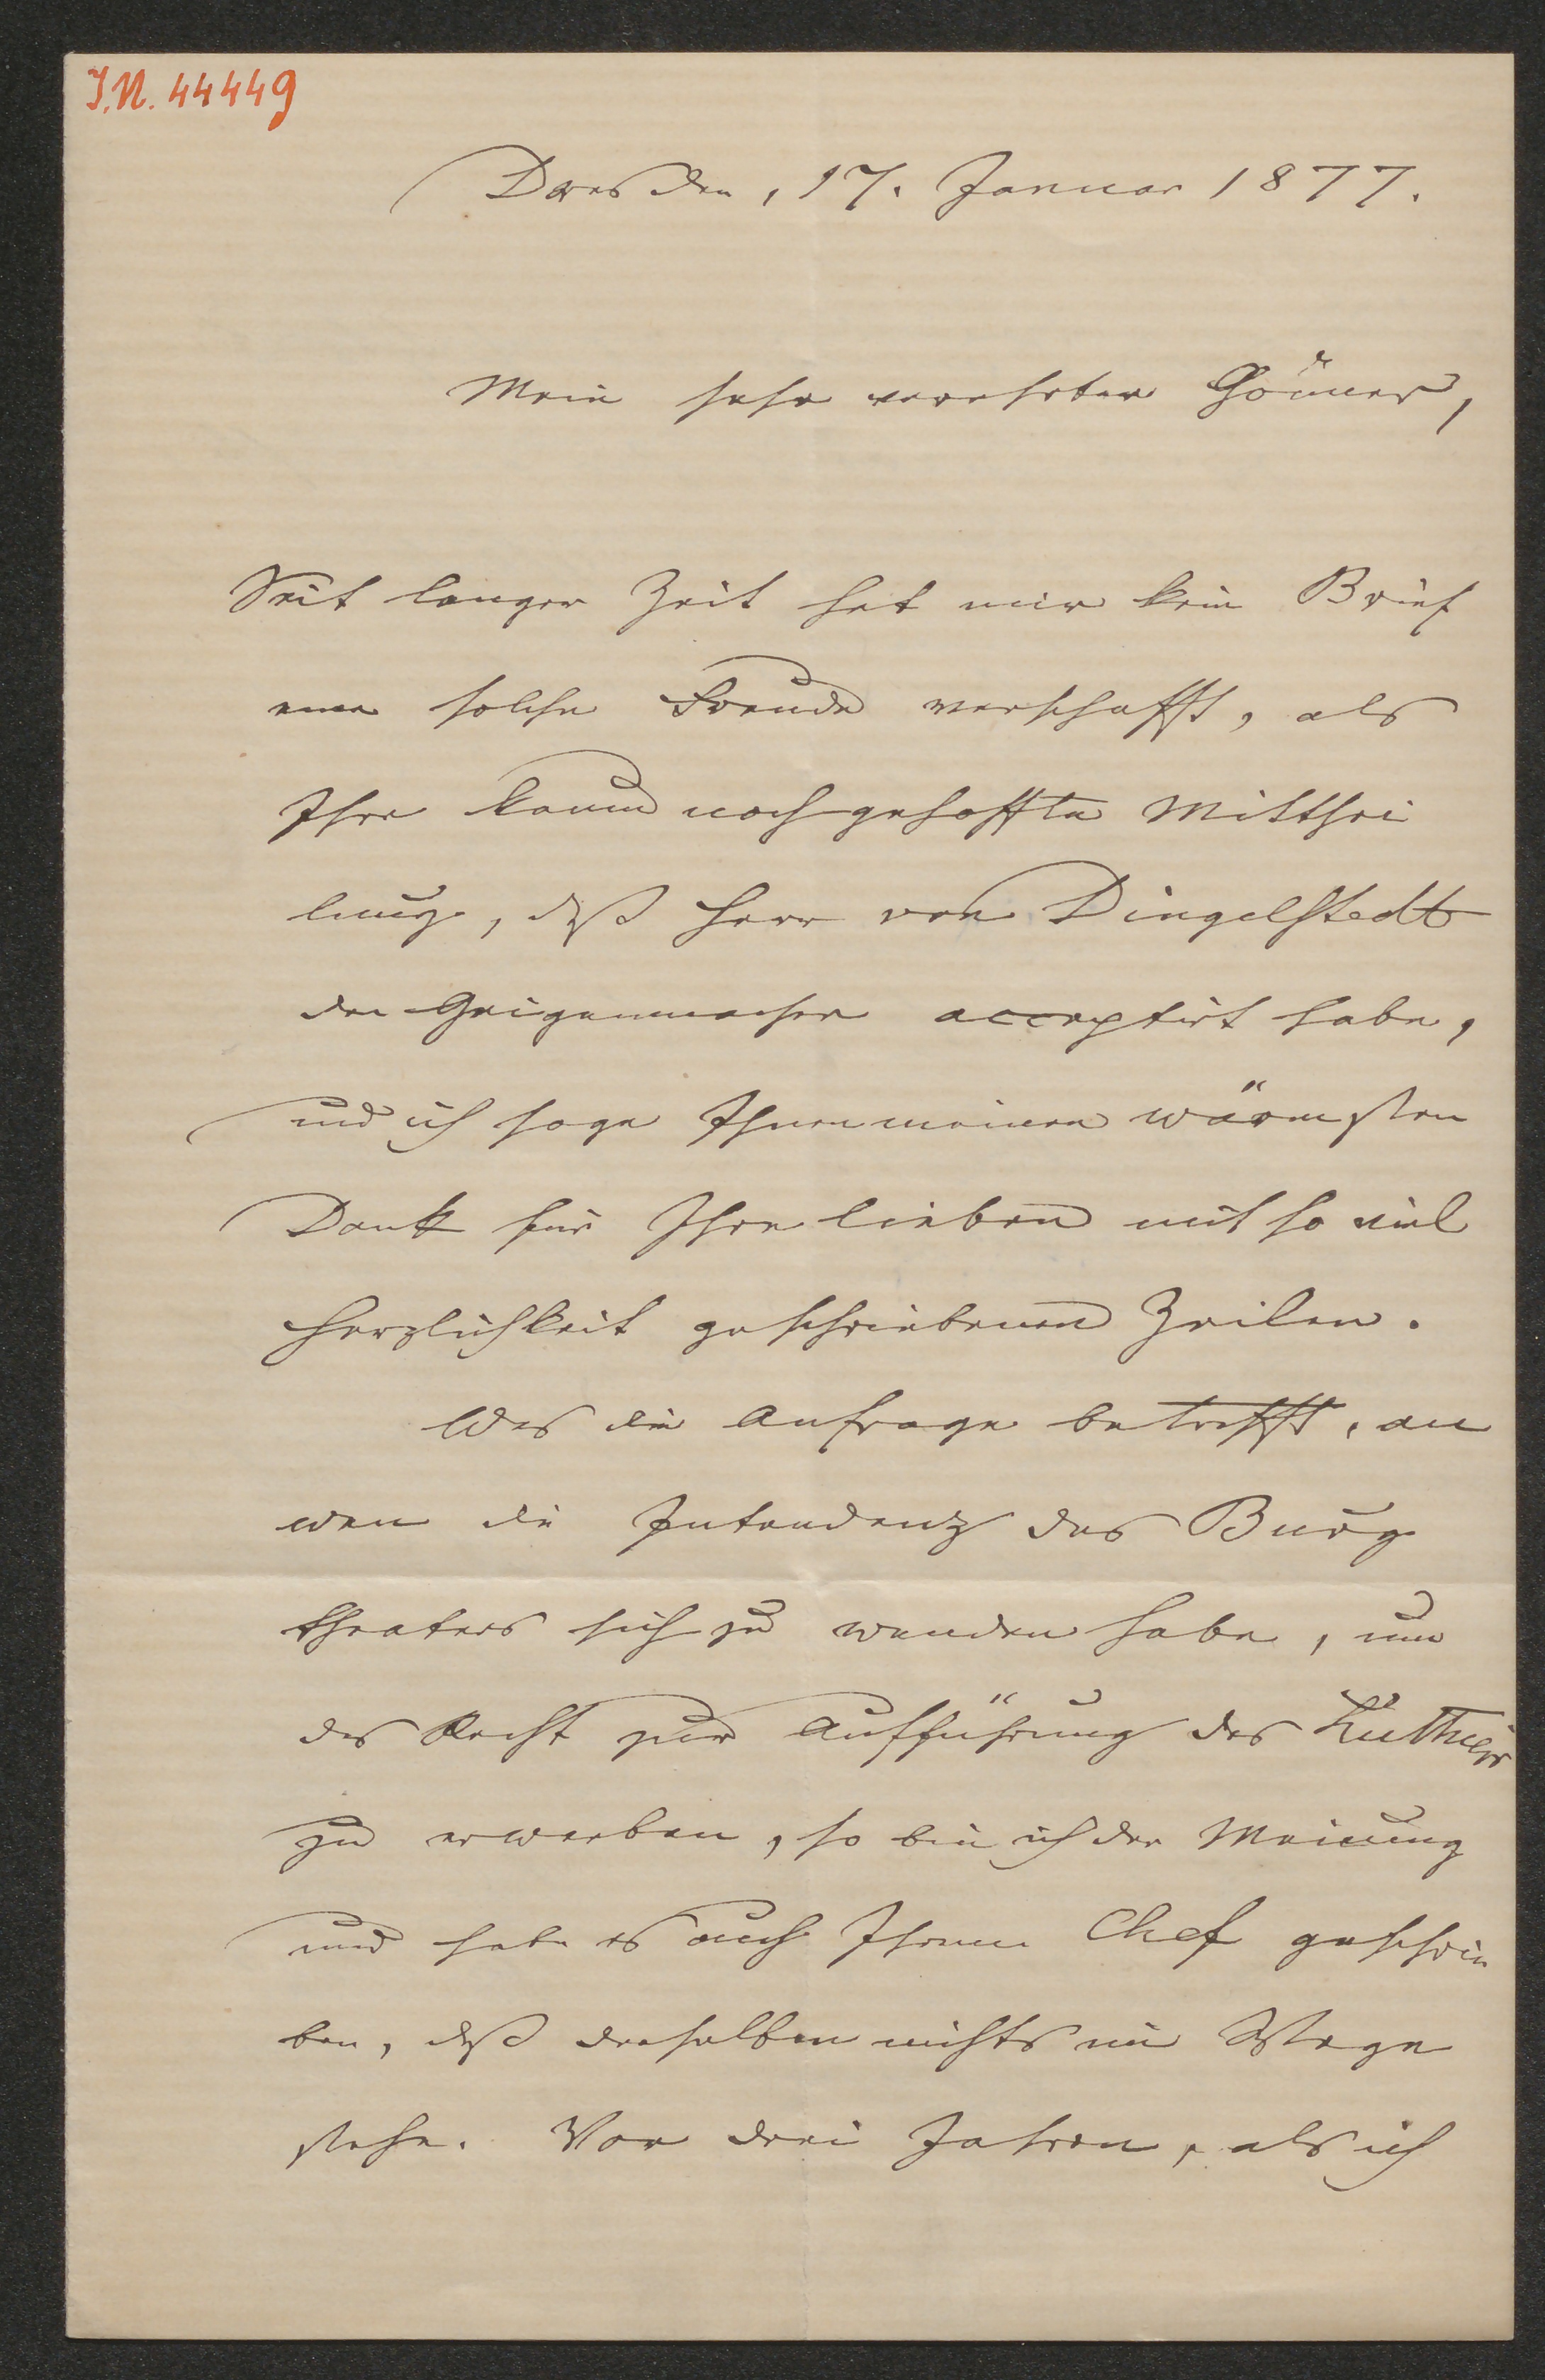 I.N. 44449
Dresden, 17. Januar 1877.
Mein sehr verehrter Gönner,
Seit langer Zeit hat mir kein Brief
eine solche Freude verschafft, als
Ihre kaum noch gehoffte Mitthei
lung, daß Herr von Dingelstedt
den Geigenmacher acceptirt habe,
und ich sage Ihnen meinen wärmsten
Dank für Ihre lieben mit so viel
Herzlichkeit geschriebenen Zeilen.
Was die Anfrage betrifft, an
wen die Intendanz des Burg
theaters sich zu wenden habe, um
das Recht zur Aufführung des Luthier
zu erwerben, so bin ich der Meinung
und habe es auch Ihrem Chef geschrie
ben, daß derselben nichts im Wege
stehe. Vor drei Jahren, als ich